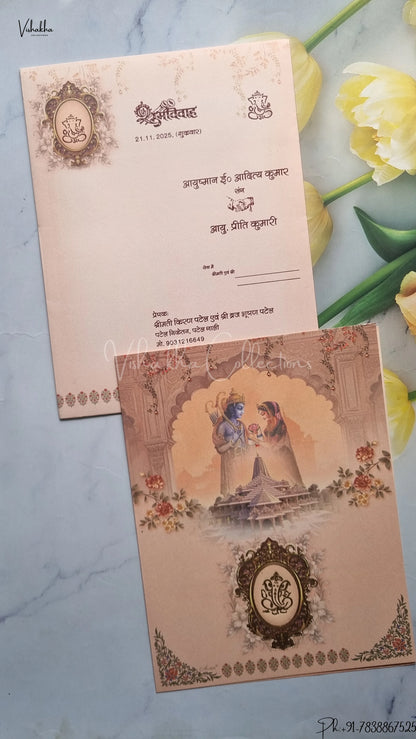 Vishakha
शुभ विवाह
21.11.2025, (शुक्रवार)
आयुष्मान ई० आदित्य कुमार
संग
आयु. प्रीति कुमारी
सेवा में
श्रीमती एवं श्री
प्रेषक:
श्रीमती किरण पटेल एवं श्री ब्रज भूषण पटेल
पटेल निकेतन, पटेल गली
मो. 9031216649
Vishakha Collections
Ph.+91-7838867525